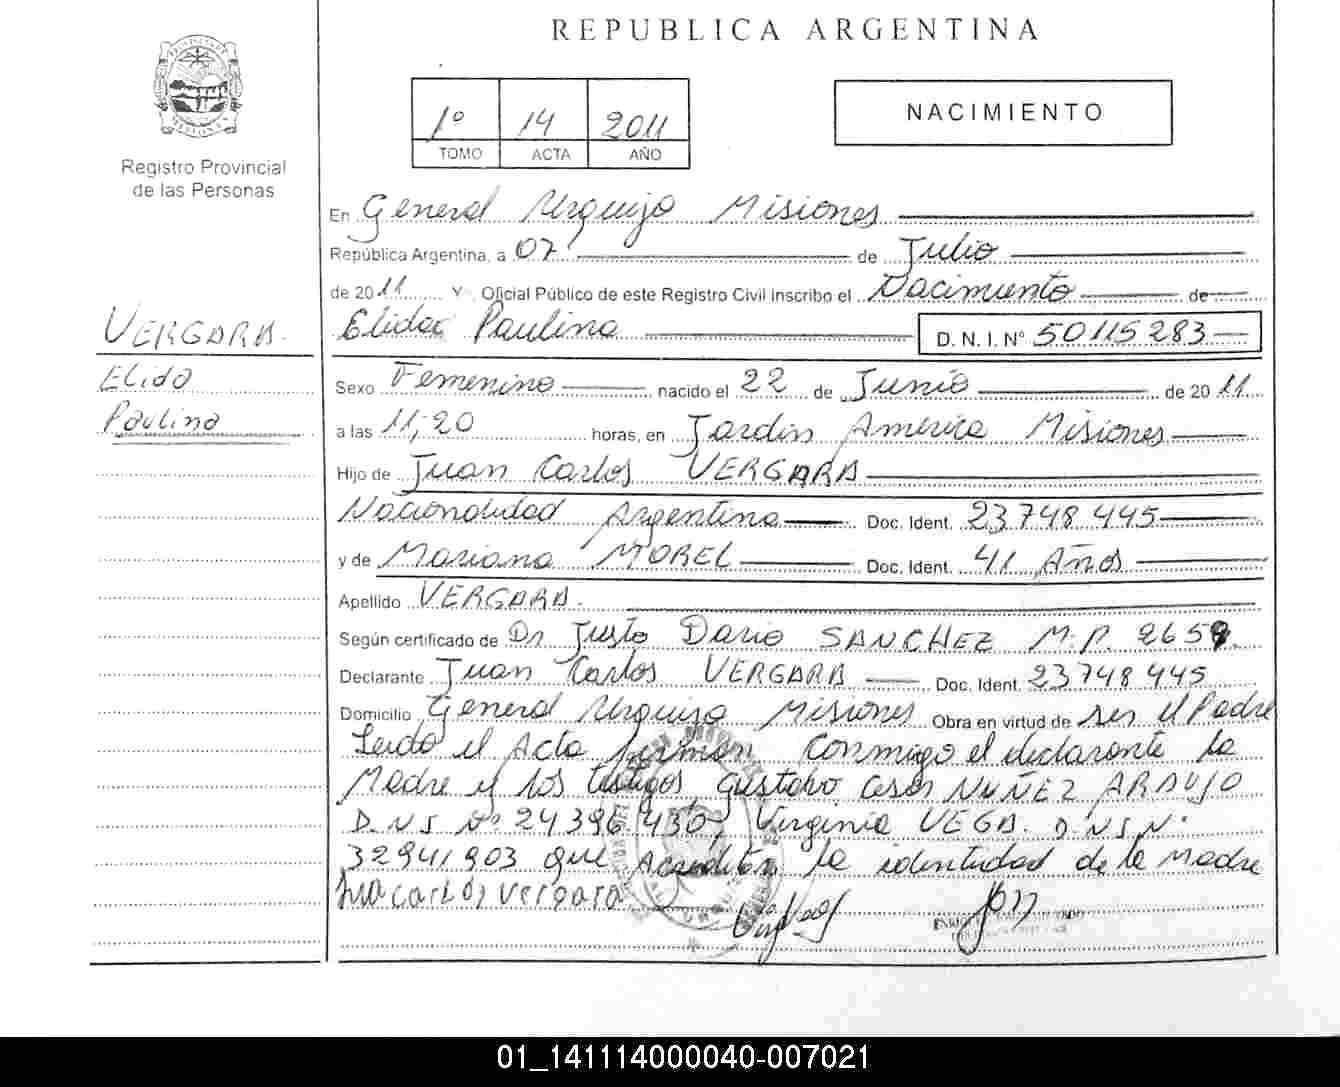 REPUBLICA ARGENTINA
Registro Provincial
de las Personas
1º 14 2011
TOMO ACTA AÑO
NACIMIENTO
VERGARA.
Elida
Paulina
En General Urquiza Misiones
República Argentina, a 07 de Julio
de 2011 Y Oficial Público de este Registro Civil inscribo el Nacimiento de
Elida Paulina D.N.I. Nº 50115283
Sexo Femenino nacido el 22 de Junio de 2011
a las 11,20 horas, en Jardin America Misiones
Hijo de Juan Carlos VERGARA
Nacionalidad Argentina Doc. Ident. 23748445
y de Mariana MOREL Doc. Ident. 41 Años
Apellido VERGARA.
Según certificado de Dr Justo Dario SANCHEZ M.P. 2659.
Declarante Juan Carlos VERGARA Doc. Ident. 23748445
Domicilio General Urquiza Misiones Obra en virtud de ser el Padre
Leido el Acta firman conmigo el declarante la
Madre y los testigos Gustavo Cesar NUÑEZ ARAUJO
D.N.I Nº 24396430, Virginia VEGA. D.N.I.Nº
32941903 que Acreditan la identidad de la Madre
Juan carlos vergara
01_141114000040-007021